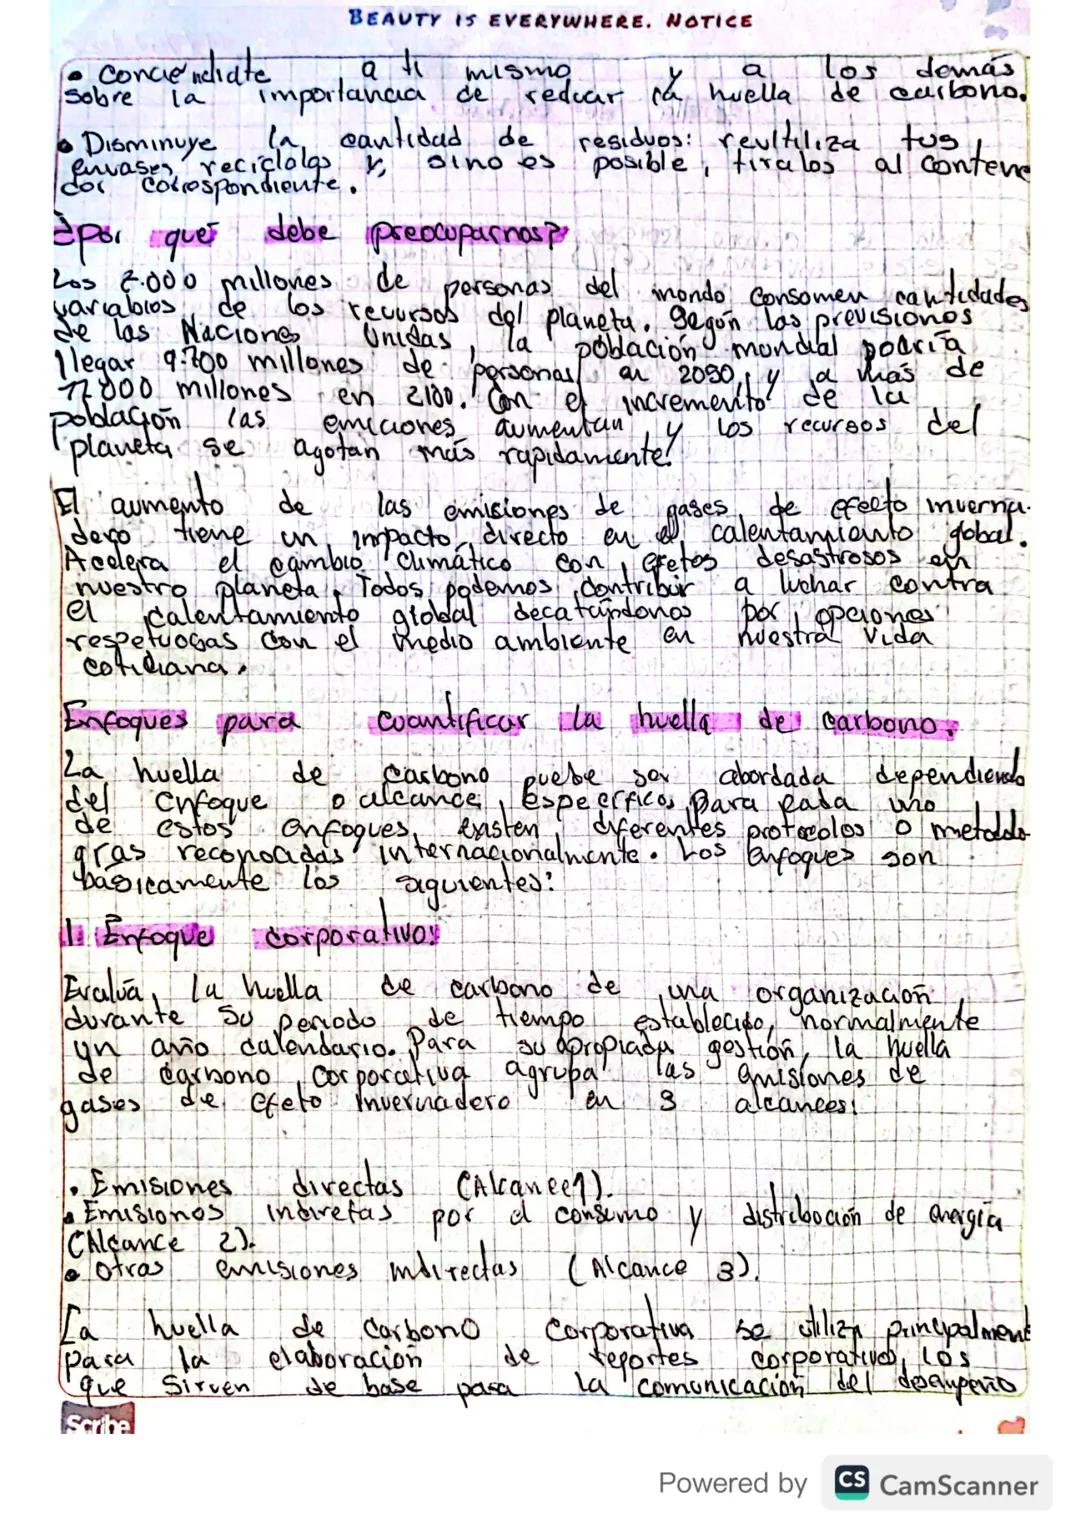 BEAUTY IS EVERYWHERE. NOTICE
• Conciendiate a ti mismo y a los demás
sobre la importancia de reducir la huella de carbono.
• Disminuye la cantidad de residuos: reutiliza tus
envases, reciclalas y, sino es posible, tiralos al contene
dor correspondiente.
¿por qué debe preocuparnos?
Los 7.000 millones de personas del mondo consomen cantidades
variables de los recursos del planeta. Según las previsiones
de las Naciones Unidas, la población mundial podría
llegar 9.700 millones de personas en 2050, y a más de
11.000 millones en 2100. Con el incremento de la
población las emiciones aumentan, y los recursos del
planeta se agotan más rapidamente.
El aumento de las emisiones de gases de efecto inverna-
dero tiene un impacto directo en el calentamiento global.
Acelera el cambio climático con efetos desastrosos en
nuestro planeta. Todos podemos contribuir a luchar contra
el calentamiento global decatandonos por opciones
respetuosas con el medio ambiente en nuestra vida
cotidiana.
Enfoques para cuantificar la huella de carbono.
La huella de carbono puebe ser abordada dependiendo
del enfoque o alcance, Específicos para cada uno
de estos enfoques, existen diferentes protocolos o metodolo-
gías reconocidas internacionalmente. Los Enfoques son
básicamente los siguientes:
1. Enfoque corporativo:
Evalúa, la huella de carbono de una organización,
durante su periodo de tiempo establecido, normalmente
un año calendario. Para su apropiada gestión, la huella
de carbono corporativa agrupa las emisiones de
gases de efeto invernadero en 3 alcances:
• Emisiones directas (Alcance 1).
• Emisiones indiretas por el consumo y distribución de energía
(Alcance 2).
• Otras emisiones indirectas (Alcance 3).
La huella de carbono corporativa se utiliza principalment
para la elaboración de reportes corporativos, los
que sirven de base para la comunicación del desempeño
Scribe
Powered by CS CamScanner